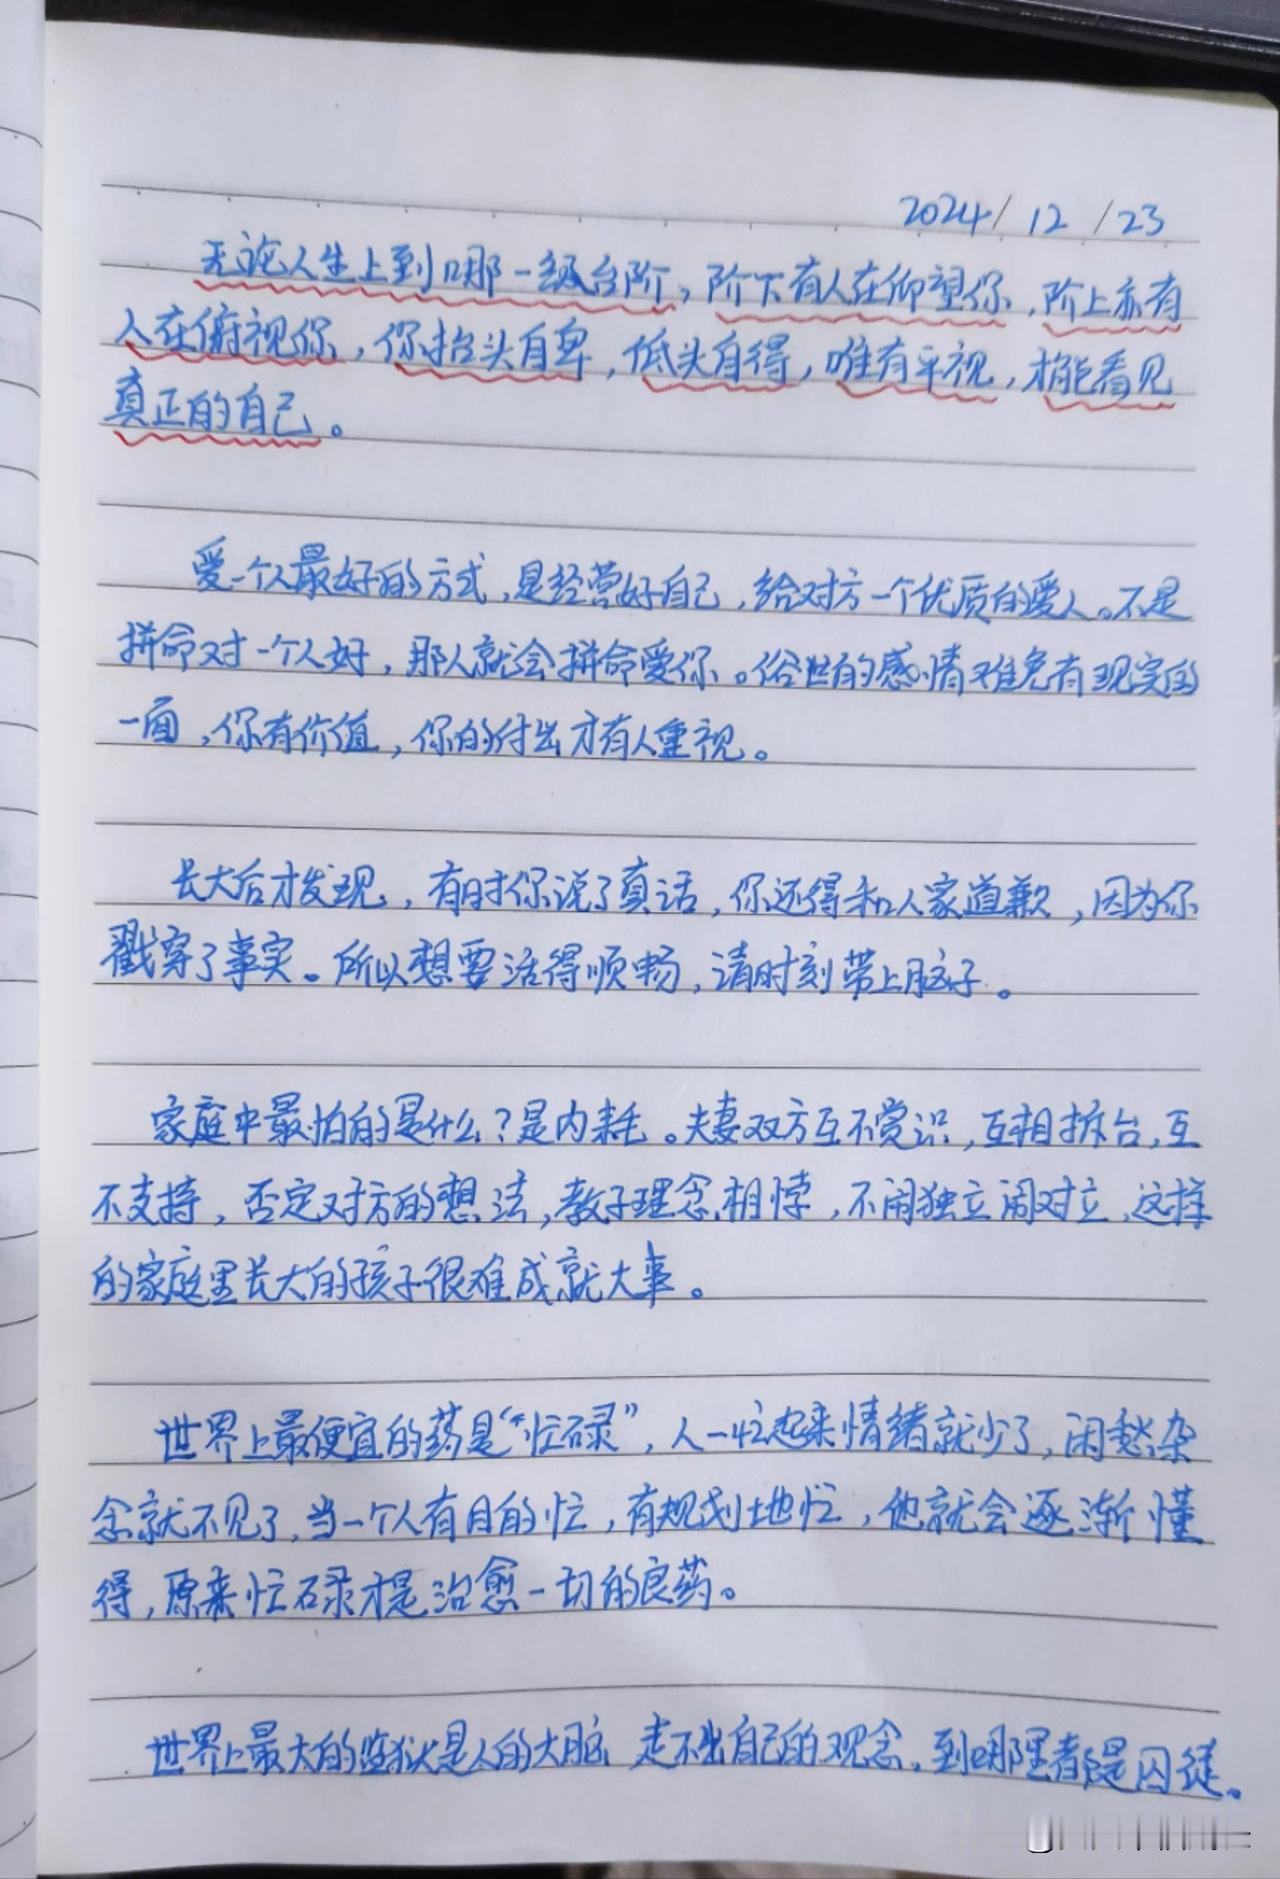 2024/12/23
无论人生上到哪一级台阶，阶下有人在仰望你，阶上亦有
人在俯视你，你抬头自卑，低头自得，唯有平视，才能看见
真正的自己。
爱一个人最好的方式，是经营好自己，给对方一个优质的爱人。不是
拼命对一个人好，那人就会拼命爱你。俗世的感情难免有现实的
一面，你有价值，你的付出才有人重视。
长大后才发现，有时你说了真话，你还得和人家道歉，因为你
戳穿了事实。所以想要活得顺畅，请时刻带上脑子。
家庭中最怕的是什么？是内耗。夫妻双方互不赏识，互相拆台，互
不支持，否定对方的想法，教子理念相悖，不闹独立闹对立，这样
的家庭里长大的孩子很难成就大事。
世界上最便宜的药是“忙碌”，人一忙起来情绪就少了，闲愁杂
念就不见了，当一个人有目的忙，有规划地忙，他就会逐渐懂
得，原来忙碌才是治愈一切的良药。
世界上最大的监狱是人的大脑，走不出自己的观念，到哪里都是囚徒。